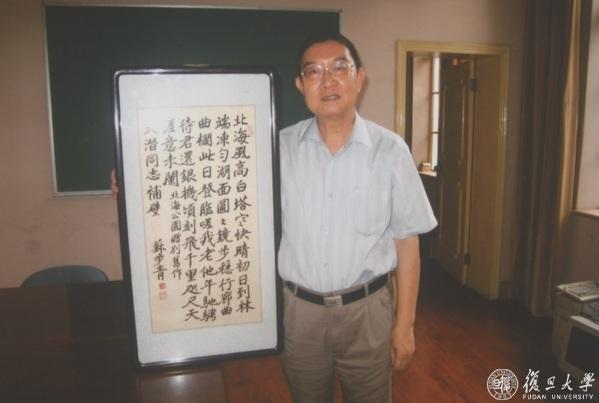 北海風高白塔寒快晴初日到林
端凍勻湖面圓〻鏡步穩行廊曲
曲欄此日登臨嗟我老他年馳騁
待君還銀機頃刻飛千里咫尺天
厓意未闌 北海公園贈別舊作
大潛同志補壁 蘇步青
復旦大學
FUDAN UNIVERSITY